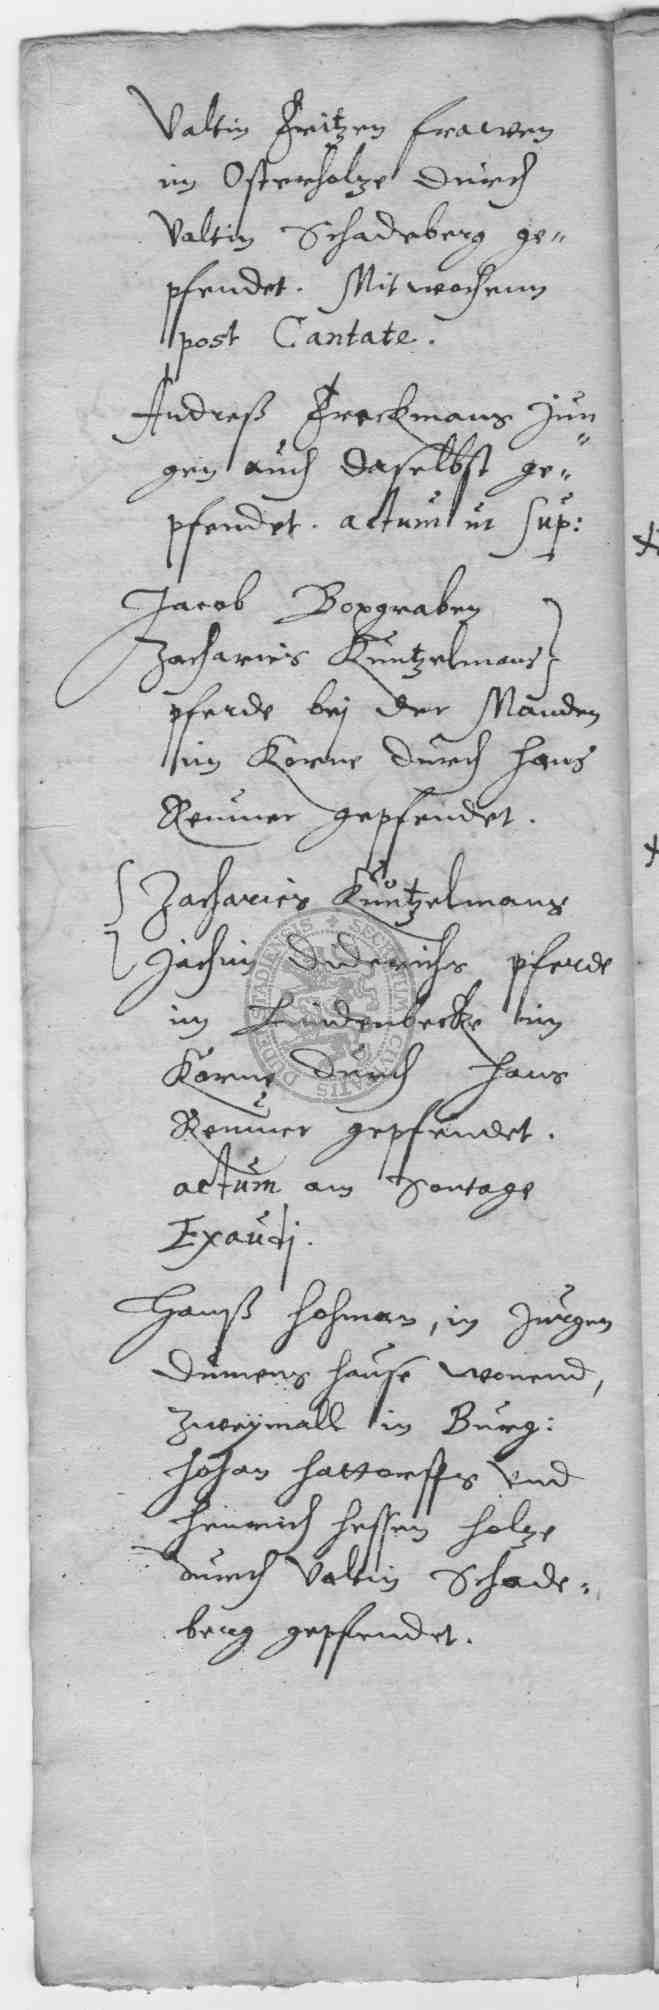 Valtin Fritzen frawen
im Osterholze durch
Valtin Schadeberg ge=
pfendet. Mitwochenn
post Cantate.
Andreß Freckmans Jun
gen auch daselbst ge=
pfendet. actum ut sup:
Jacob Boxgraben
Zacharies Kuntzelmans }
pferde bej der Mauden
im Korne durch Hans
Renner gepfendet.
{ Zacharies Kuntzelmans
Jachim Diderichs pferde
im Lindenbecke im
Korne durch Hans
Renner gepfendet.
actum am Sontage
Exaudj.
Hanß Hohman, in Jurgen
Dumens hause wonend,
zweymall in Burg:
Johan Hattorffs vnd
Heinrich Hessen holze
durch Valtin Schade=
berg gepfendet.
SECRETUM CIVITATIS DUDERSTADIENSIS